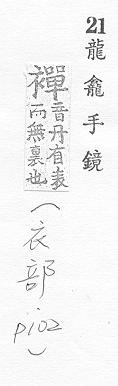 21 龍龕手鏡
襌音丹有表
而無裏也
(衣部.p102)